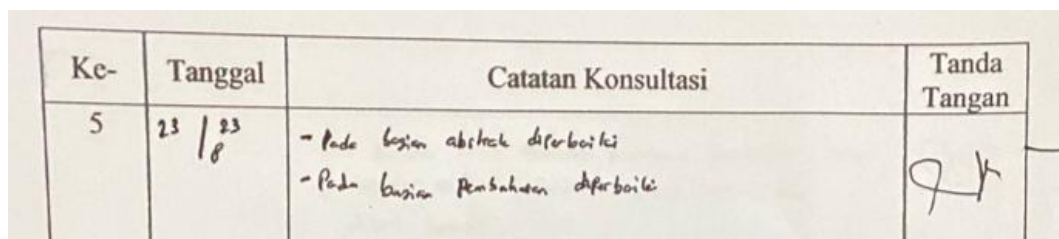 Ke- Tanggal Catatan Konsultasi Tanda Tangan
5 23/23 8 - Pada bagian abstrak diperbaiki
- Pada bagian Pembahasan diperbaiki